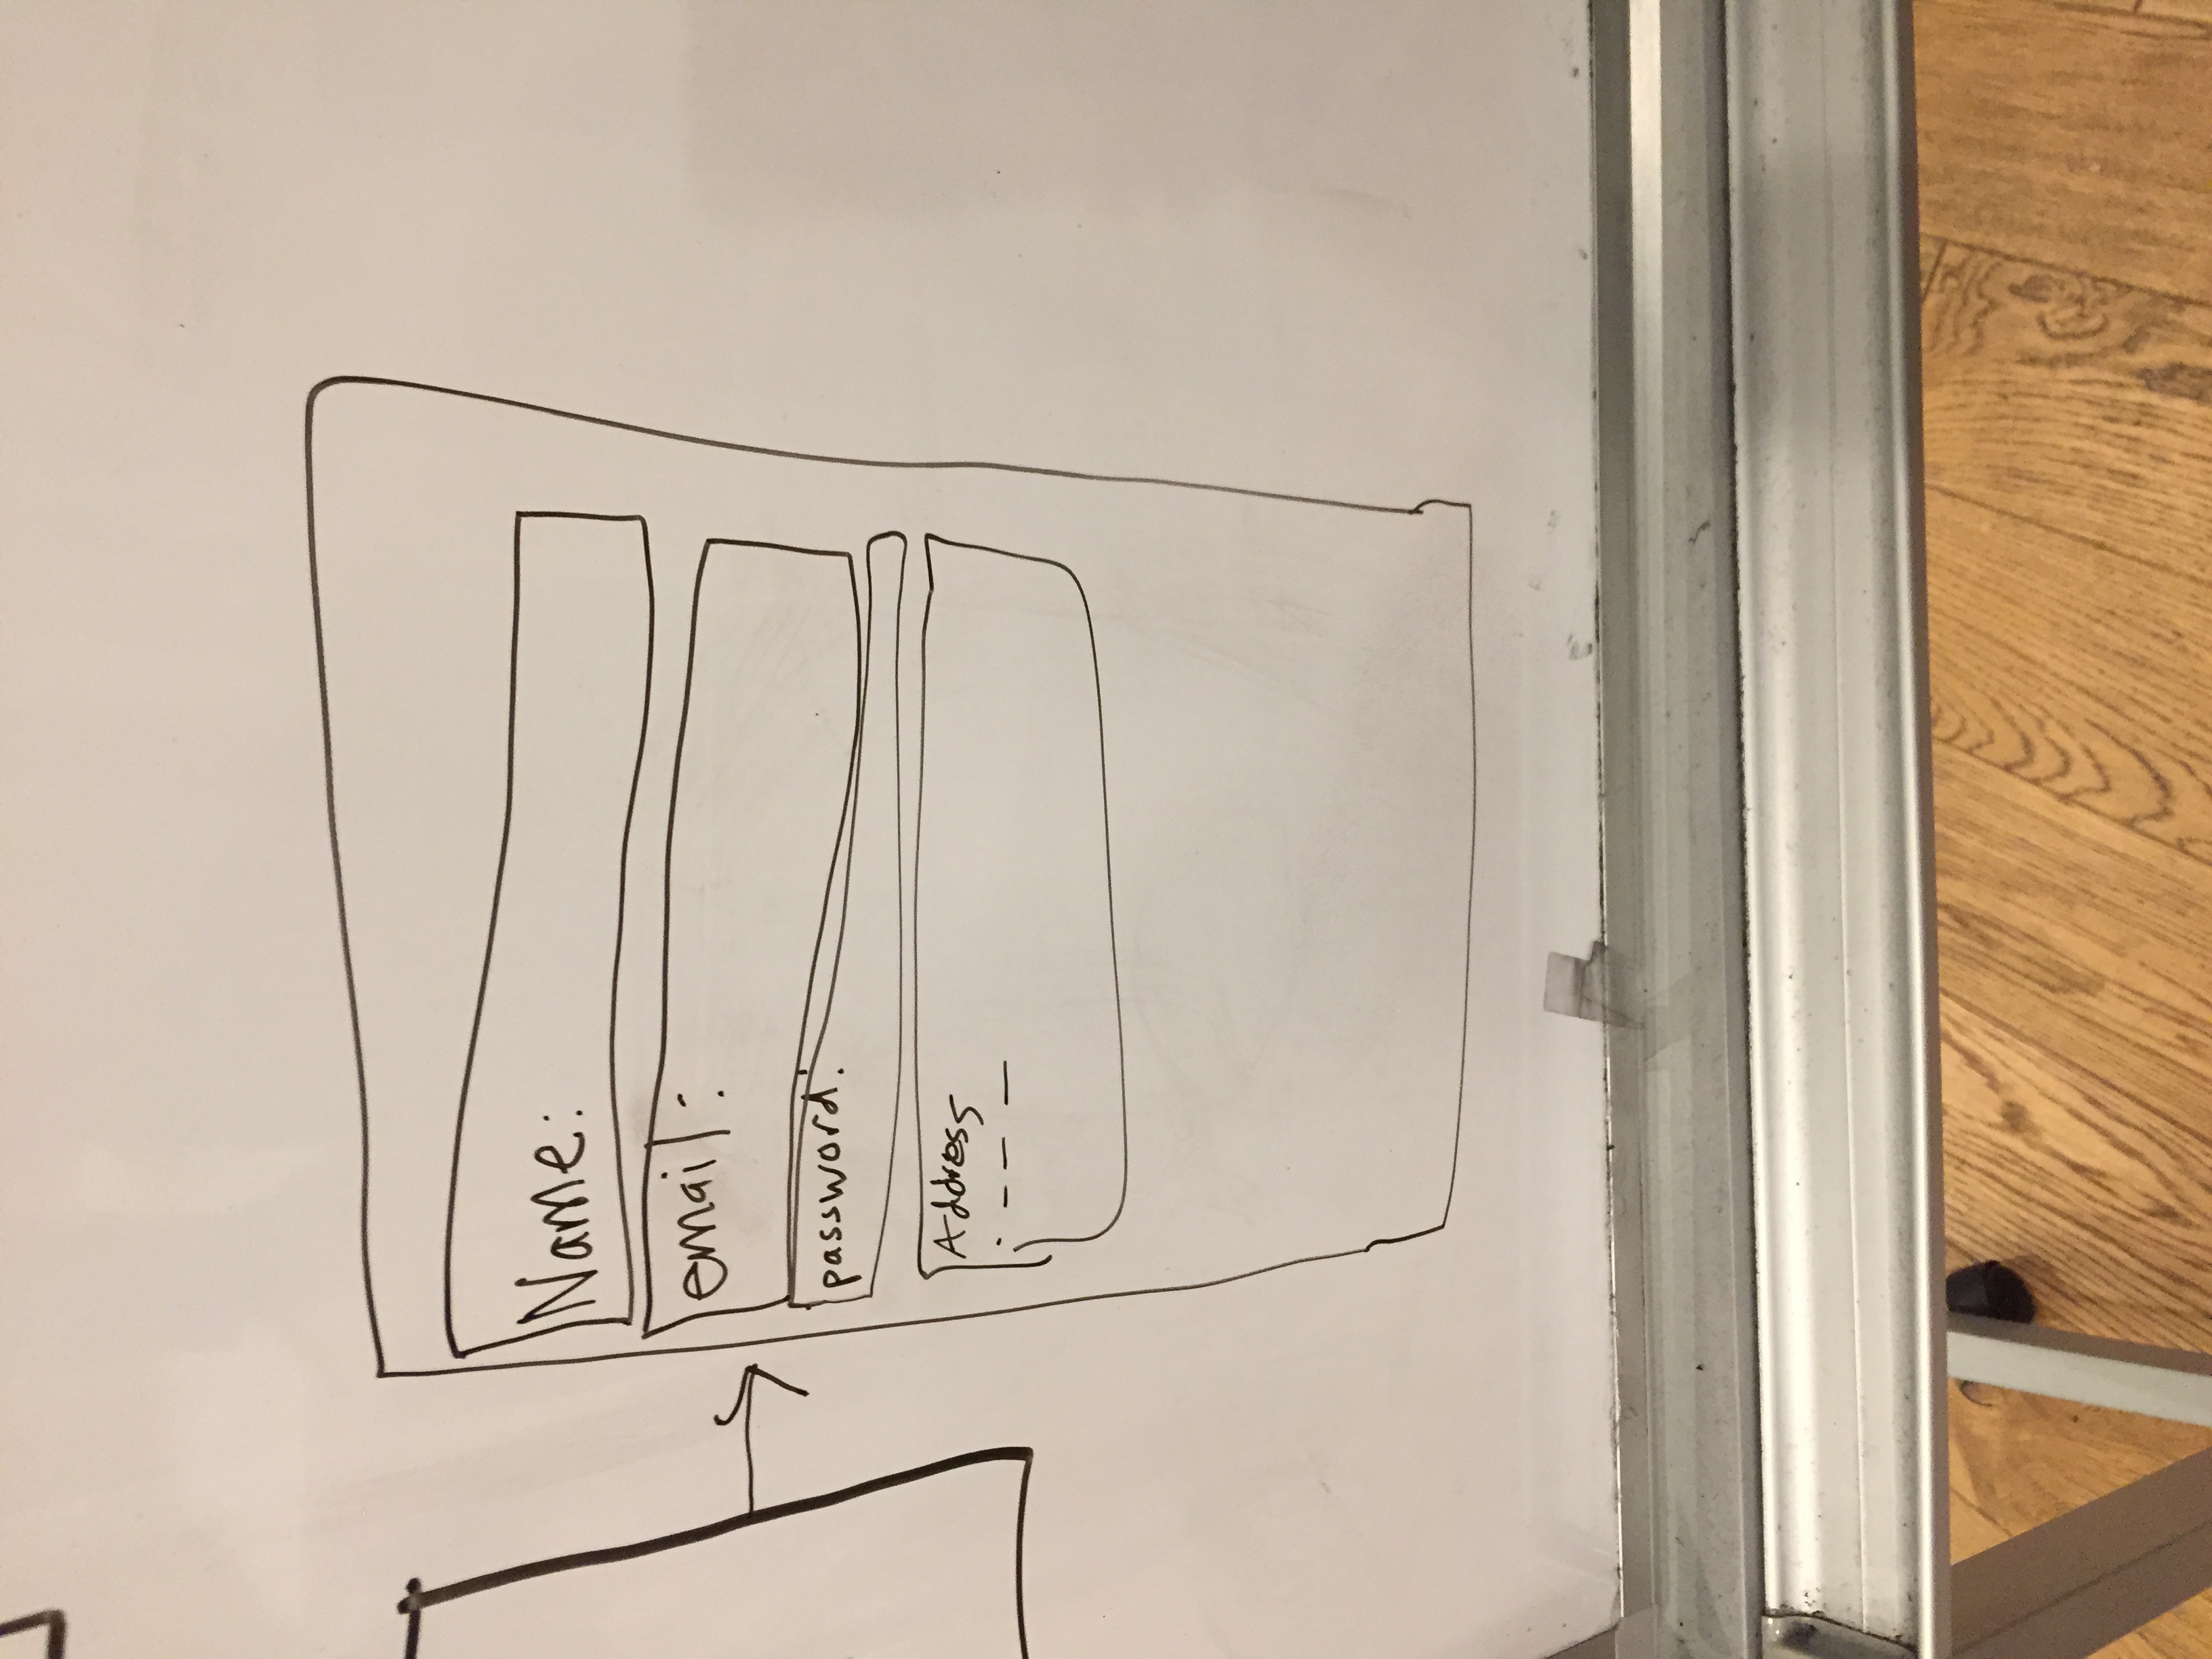 Name:
email:
password:
Address